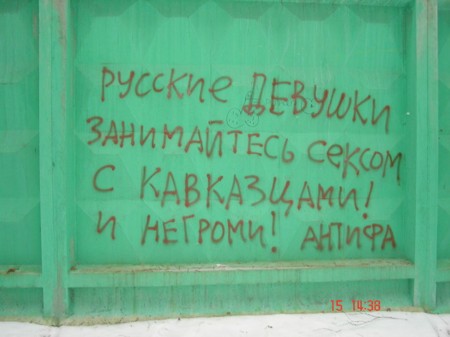 РУССКИЕ ДЕВУШКИ
ЗАНИМАЙТЕСЬ СЕКСОМ
С КАВКАЗЦАМИ!
И НЕГРОМИ! АНТИФА
15 14:38